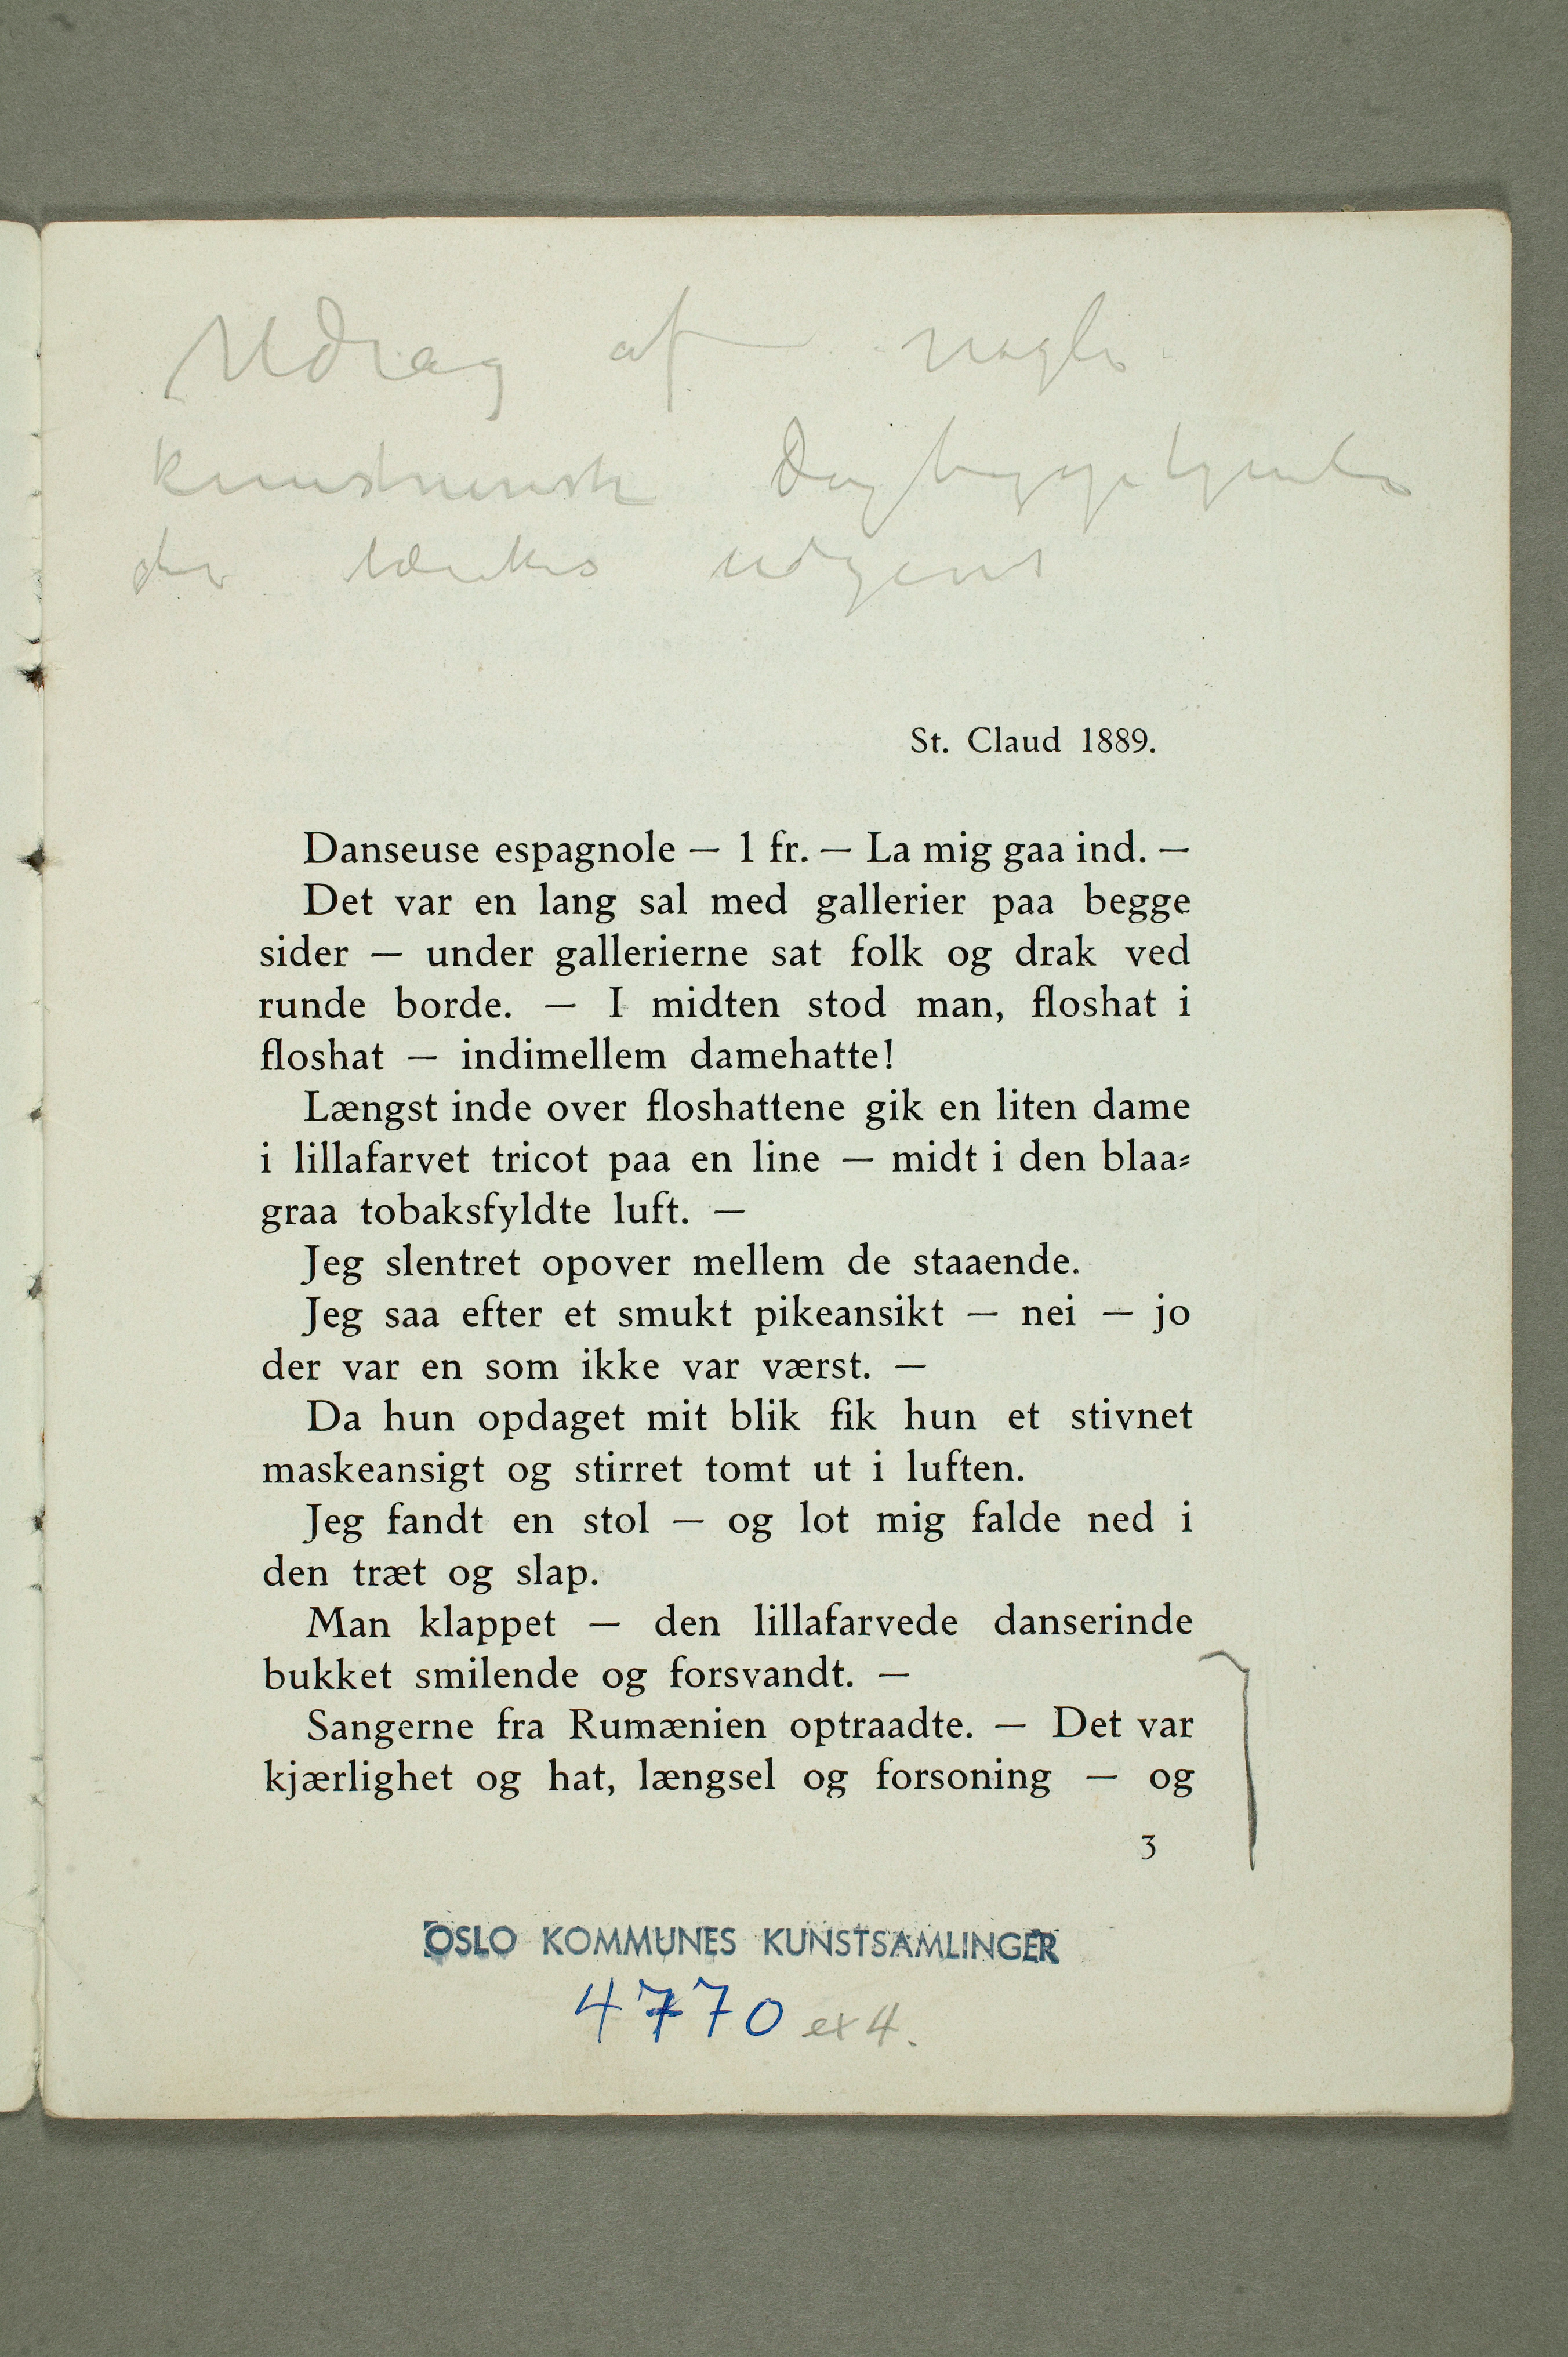 Udrag af nogle
kunstnerisk
der tænkes udgivet
St. Claud 1889.
Danseuse espagnole — 1 fr. — La mig gaa ind. —
Det var en lang sal med gallerier paa begge
sider — under gallerierne sat folk og drak ved
runde borde. — I midten stod man, floshat i
floshat — indimellem damehatte!
Længst inde over floshattene gik en liten dame
i lillafarvet tricot paa en line — midt i den blaa-
graa tobaksfyldte luft. —
Jeg slentret opover mellem de staaende.
Jeg saa efter et smukt pikeansikt — nei — jo
der var en som ikke var værst. —
Da hun opdaget mit blik fik hun et stivnet
maskeansigt og stirret tomt ut i luften.
Jeg fandt en stol — og lot mig falde ned i
den træt og slap.
Man klappet — den lillafarvede danserinde
bukket smilende og forsvandt. —
Sangerne fra Rumænien optraadte. — Det var
kjærlighet og hat, længsel og forsoning — og
3
OSLO KOMMUNES KUNSTSAMLINGER
4770 ex 4.